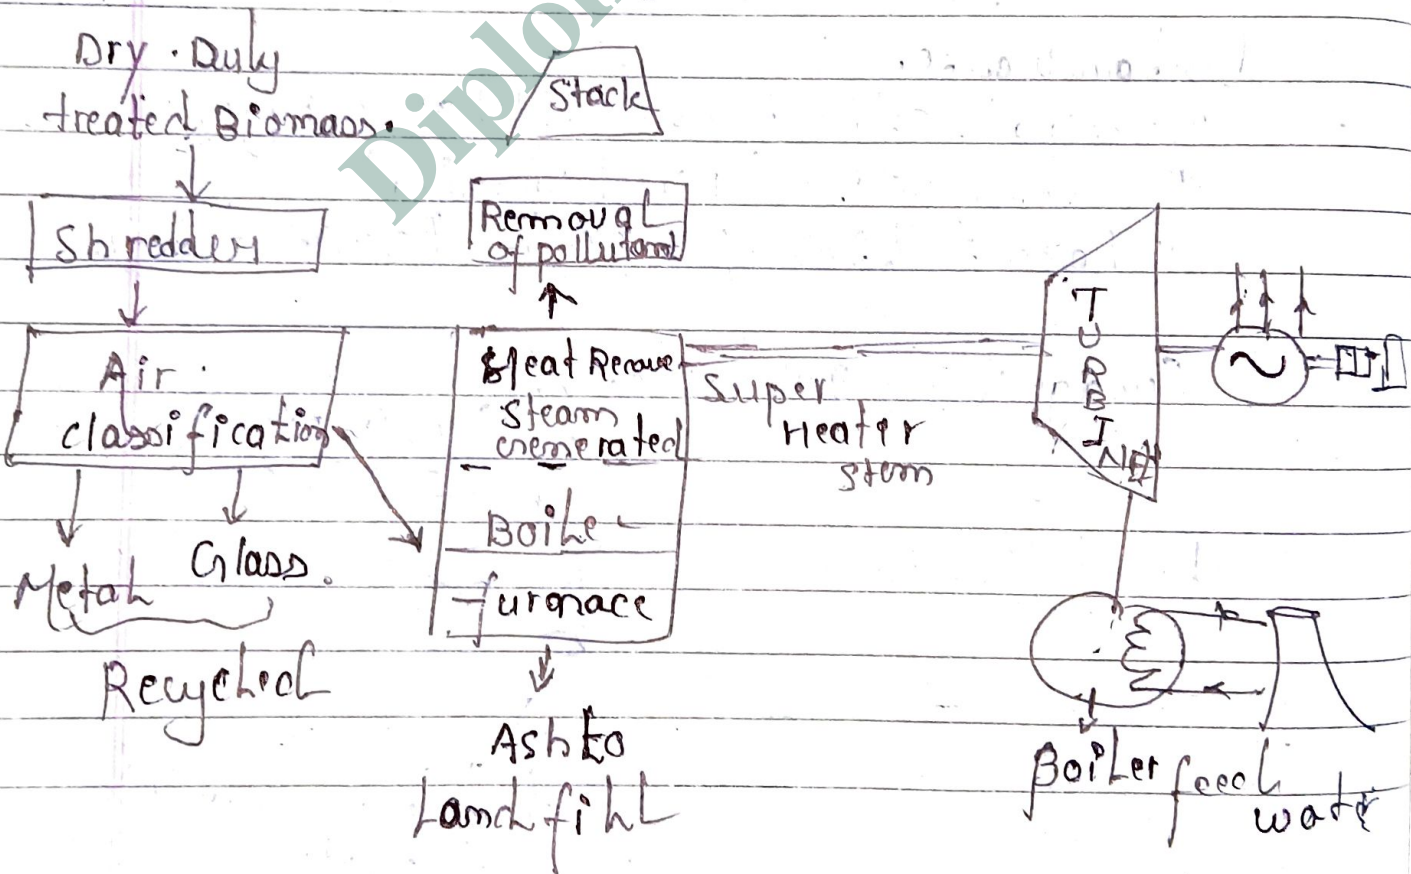 Dry. Duly
treated Biomass.
Shredder
Air
classification
Metal
Glass.
Recycled
Stack
Removal
of pollutant
Heat
Steam
Generated
Boiler
furnace
Ash to
Land fill
Super
Heater
stem
TURBINE
Boiler feed
water
Diplom